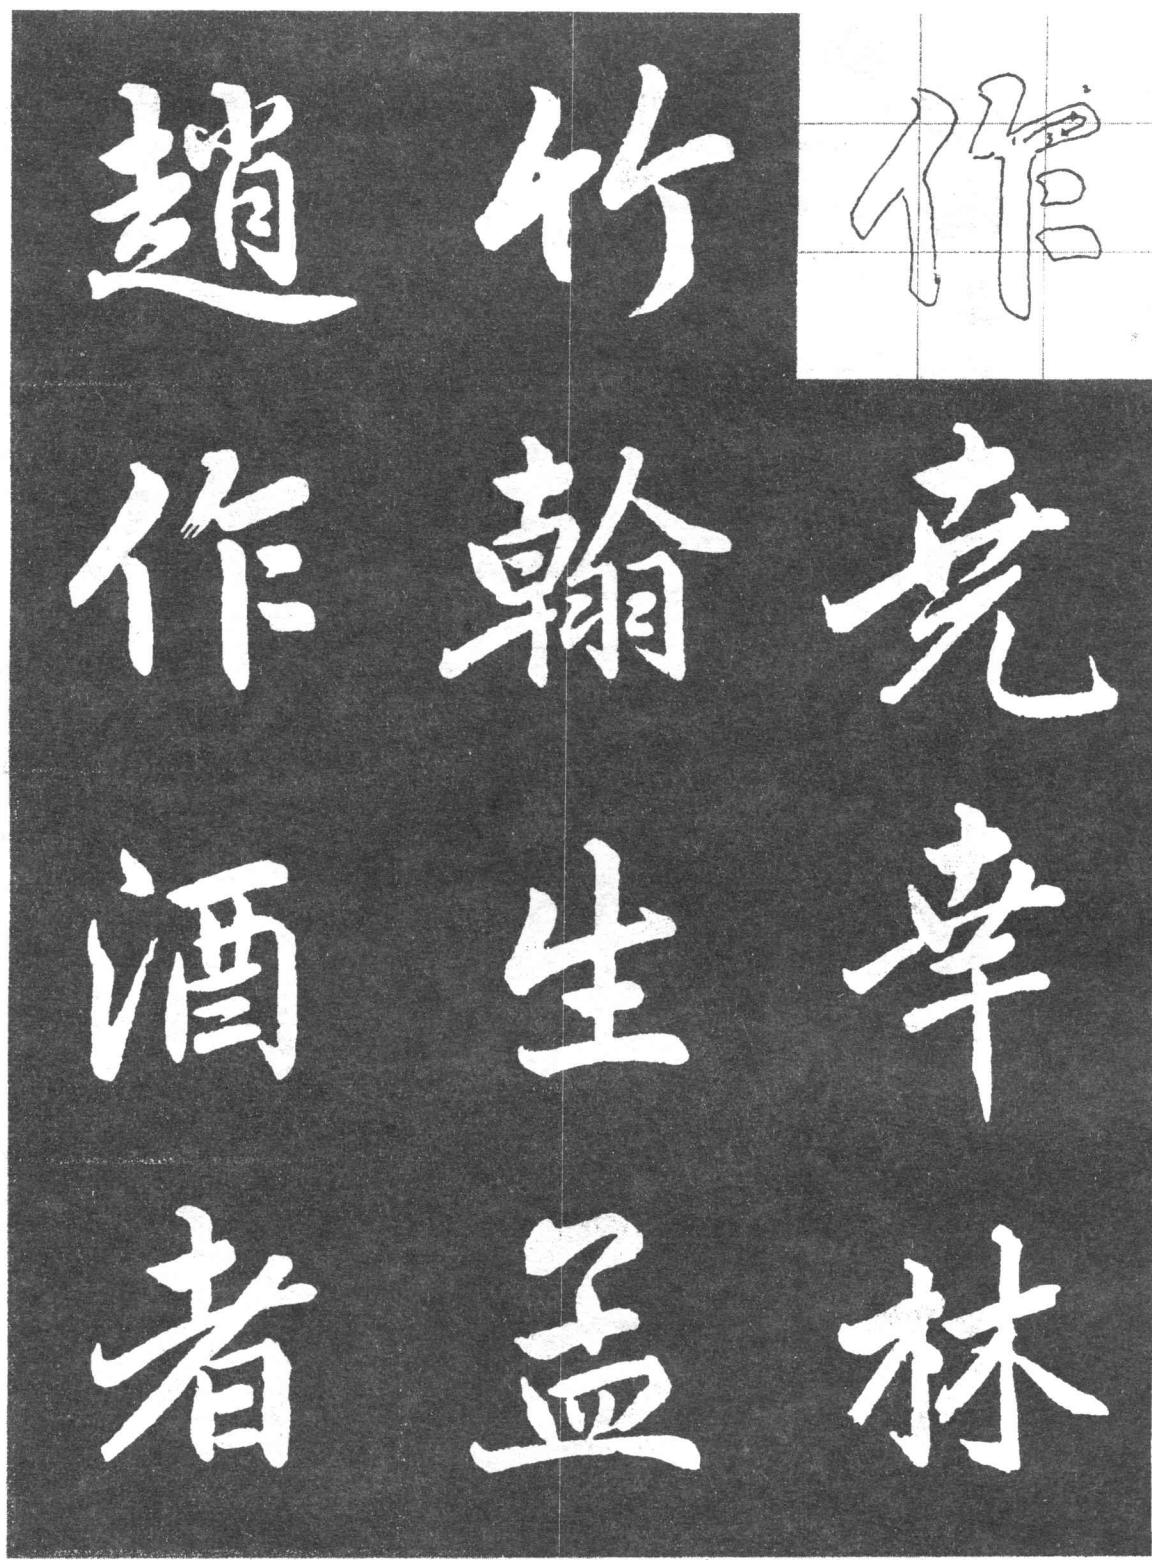 作
尭幸林
竹翰生孟
趙作酒者